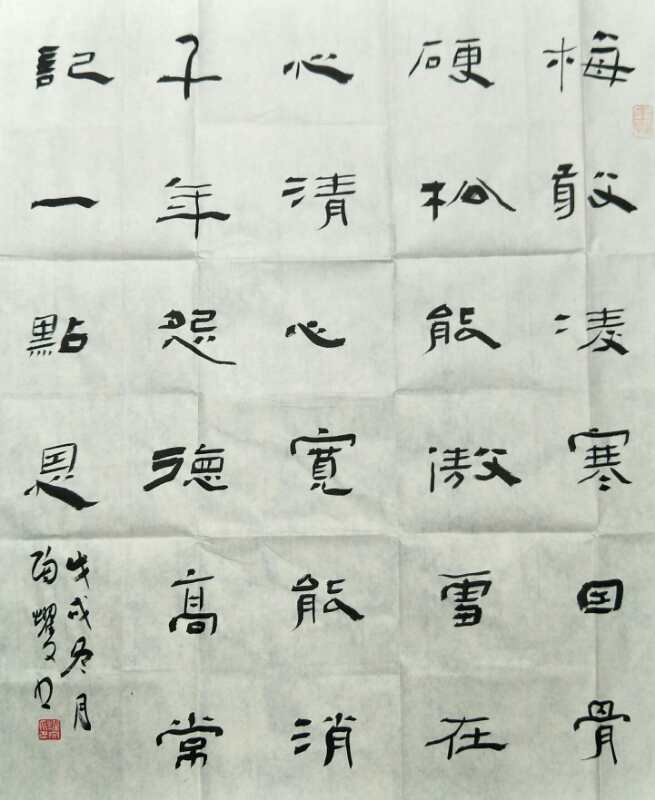 梅敢凌寒因骨
硬松能傲雪在
心清心寬能消
千年怨德高常
記一點恩
戊戌冬月